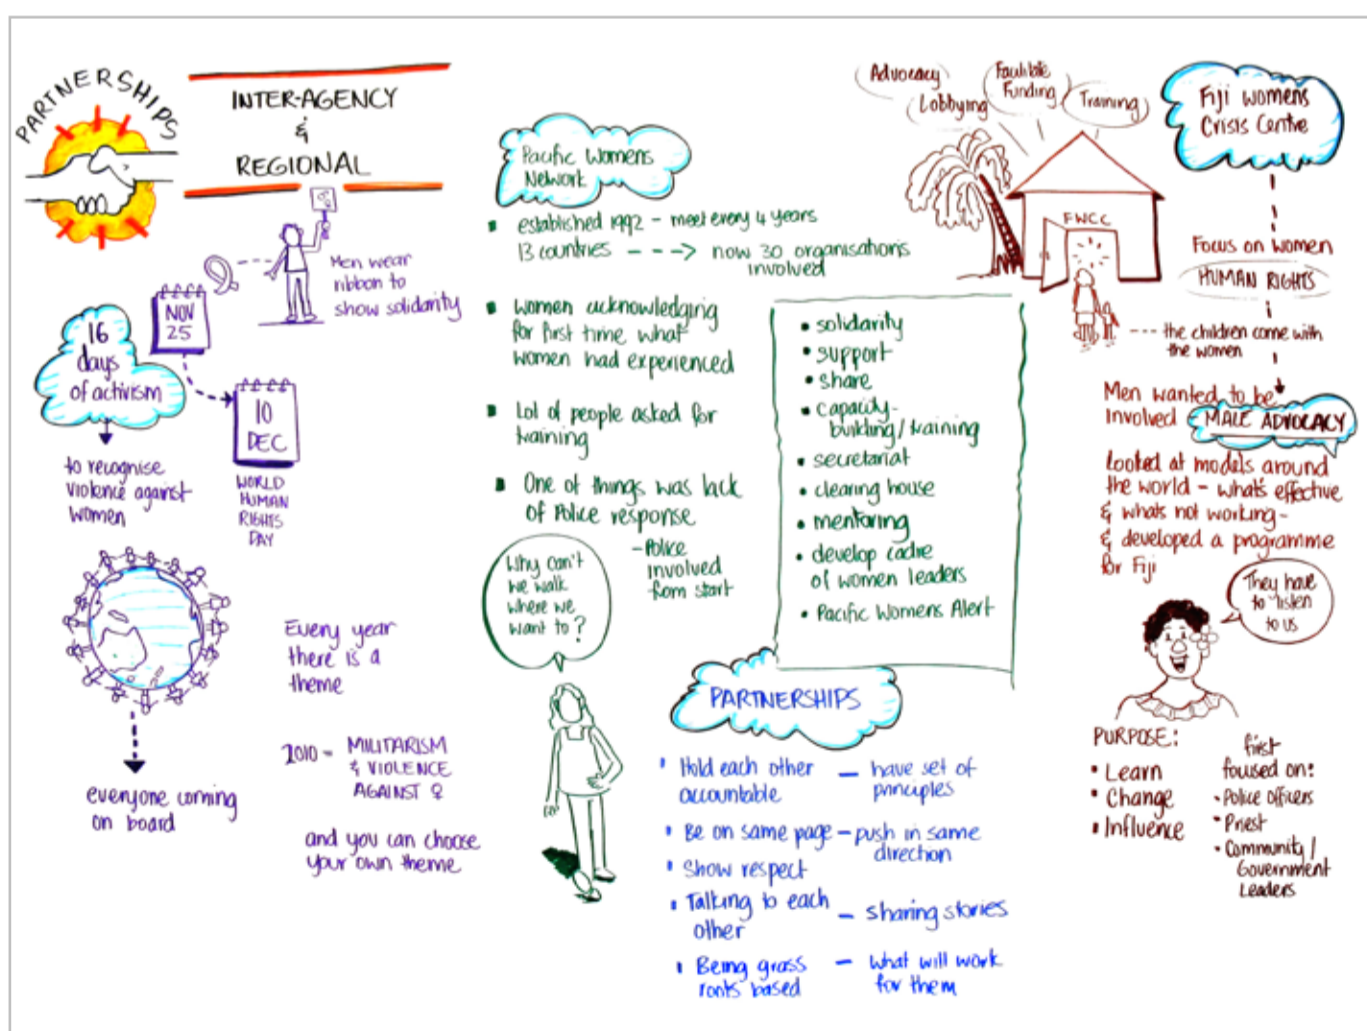 PARTNERSHIPS
INTER-AGENCY
&
REGIONAL
Men wear
ribbon to
show solidarity
NOV
25
16
days
of activism
10
DEC
WORLD
HUMAN
RIGHTS
DAY
to recognise
violence against
women
everyone coming
on board
Every year
there is a
theme
2010 - MILITARISM
& VIOLENCE
AGAINST ♀
and you can choose
your own theme
Pacific Womens
Network
established 1992 - meet every 4 years
13 countries ---> now 30 organisations
involved
women acknowledging
for first time what
women had experienced
Lot of people asked for
training
One of things was lack
of Police response
- Police
involved
from start
Why can't
we walk
where we
want to?
• solidarity
• support
• share
• capacity-
building/training
• secretariat
• clearing house
• mentoring
• develop cadre
of women leaders
• Pacific Womens Alert
PARTNERSHIPS
Hold each other — have set of
accountable principles
Be on same page — push in same
direction
Show respect
Talking to each
other — sharing stories
Being grass — what will work
roots based for them
Advocacy
Lobbying
Facilitate
Funding
Training
FWCC
Fiji Womens
Crisis Centre
Focus on women
HUMAN RIGHTS
--- the children come with
the women
Men wanted to be
involved - MALE ADVOCACY
Looked at models around
the world - what's effective
& whats not working -
& developed a programme
for Fiji
They have
to listen
to us
PURPOSE:
• Learn
• Change
• Influence
first
focused on:
• Police officers
• Priest
• Community/
Government
Leaders